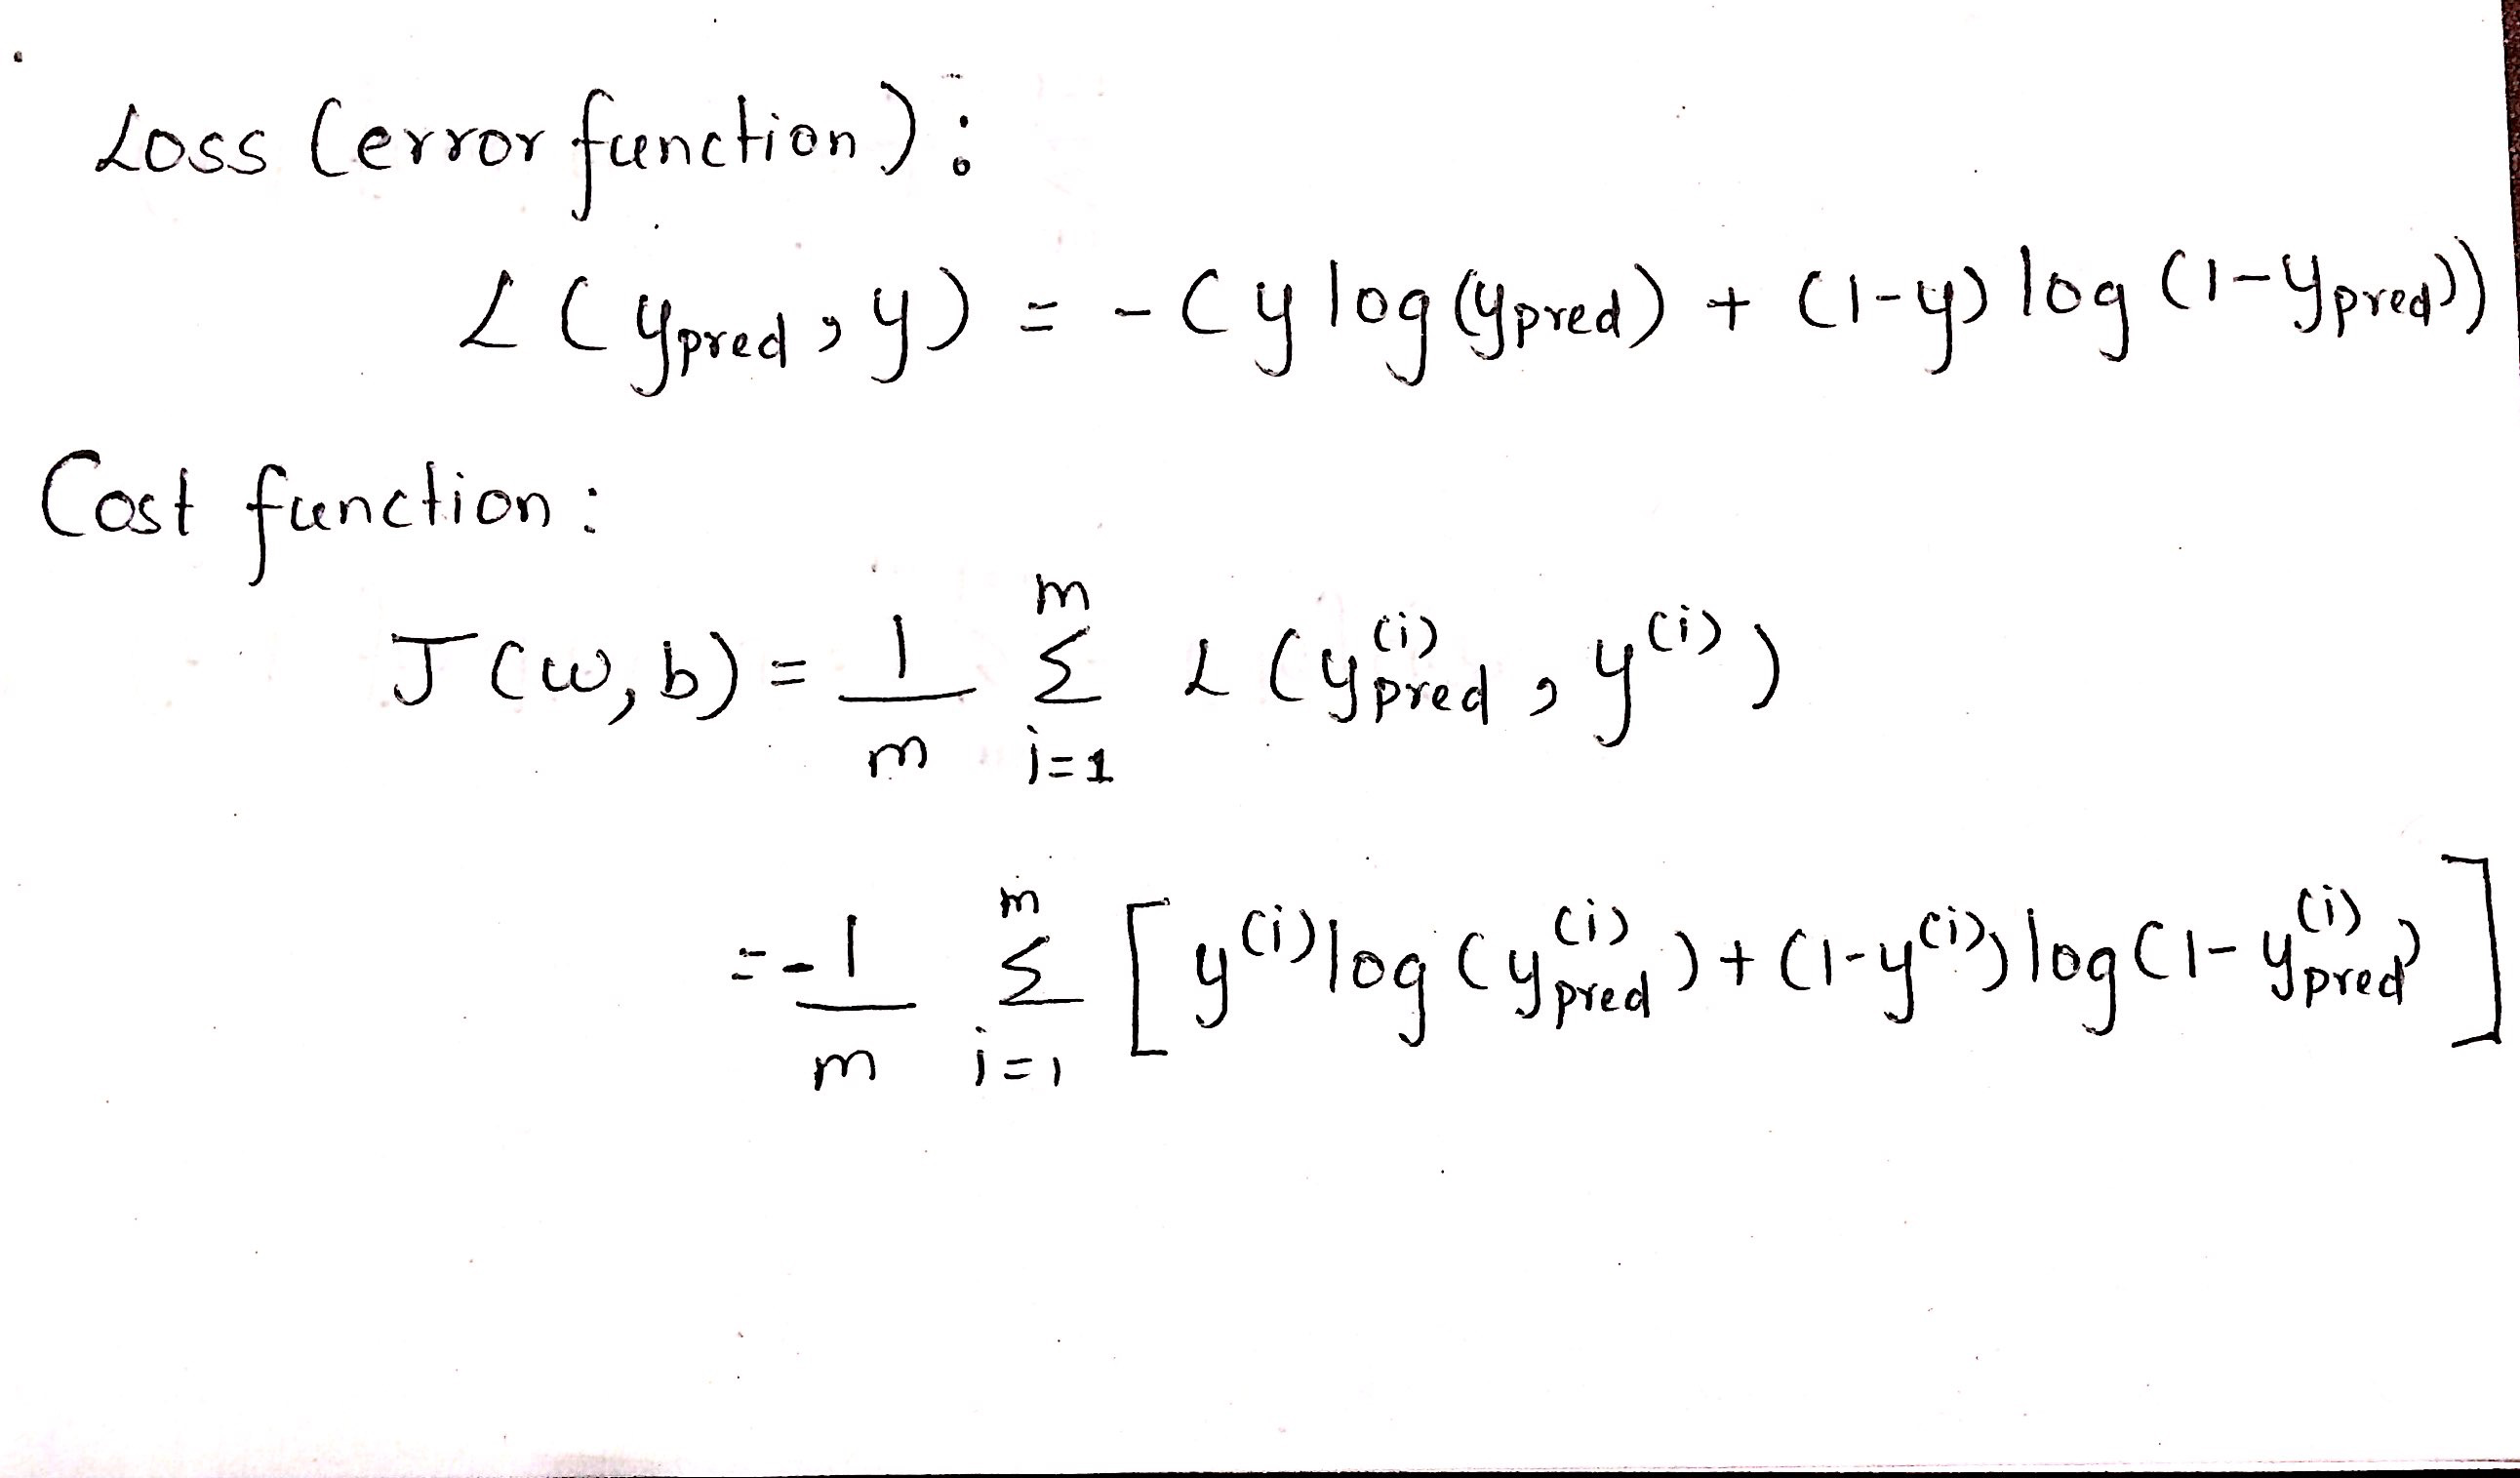 Loss (error function):
L (y_pred, y) = -(y log (y_pred) + (1-y) log (1-y_pred))
Cost function:
J(w,b) = 1/m Σ_{i=1}^{m} L (y_pred^(i), y^(i))
= -1/m Σ_{i=1}^{m} [y^(i) log (y_pred^(i)) + (1-y^(i)) log (1-y_pred^(i))]